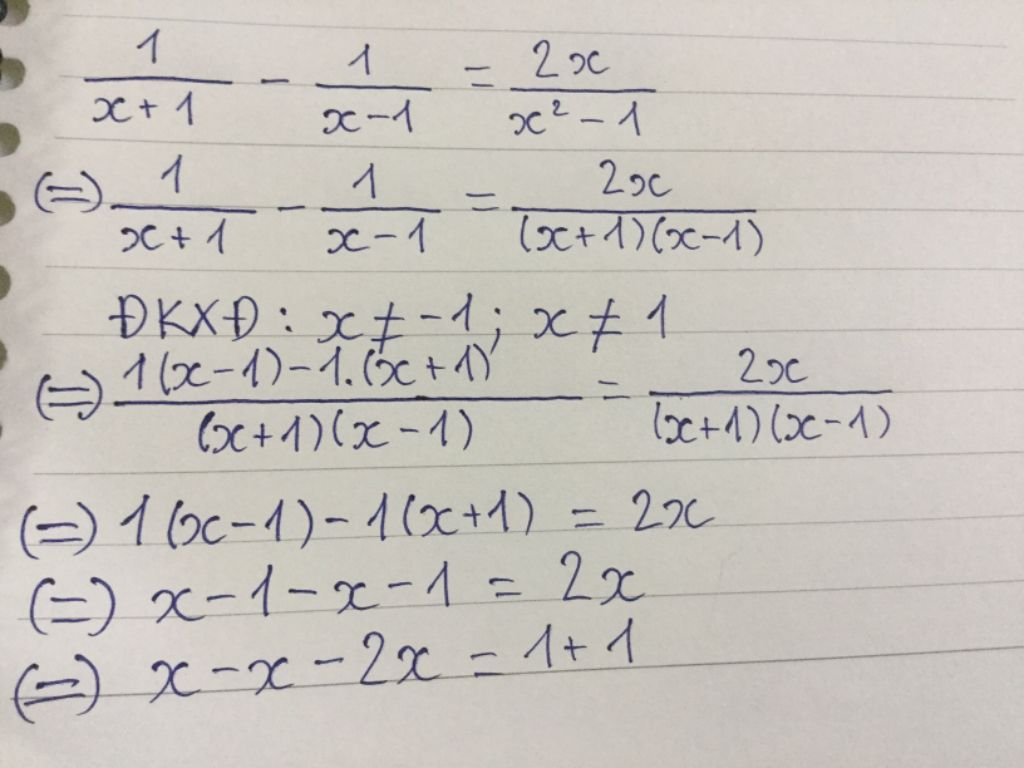 1/(x+1) - 1/(x-1) = 2x/(x² - 1)
(=) 1/(x+1) - 1/(x-1) = 2x/((x+1)(x-1))
ĐKXĐ : x ≠ -1 ; x ≠ 1
(=) (1(x-1) - 1.(x+1))/((x+1)(x-1)) = 2x/((x+1)(x-1))
(=) 1(x-1) - 1(x+1) = 2x
(=) x - 1 - x - 1 = 2x
(=) x - x - 2x = 1 + 1